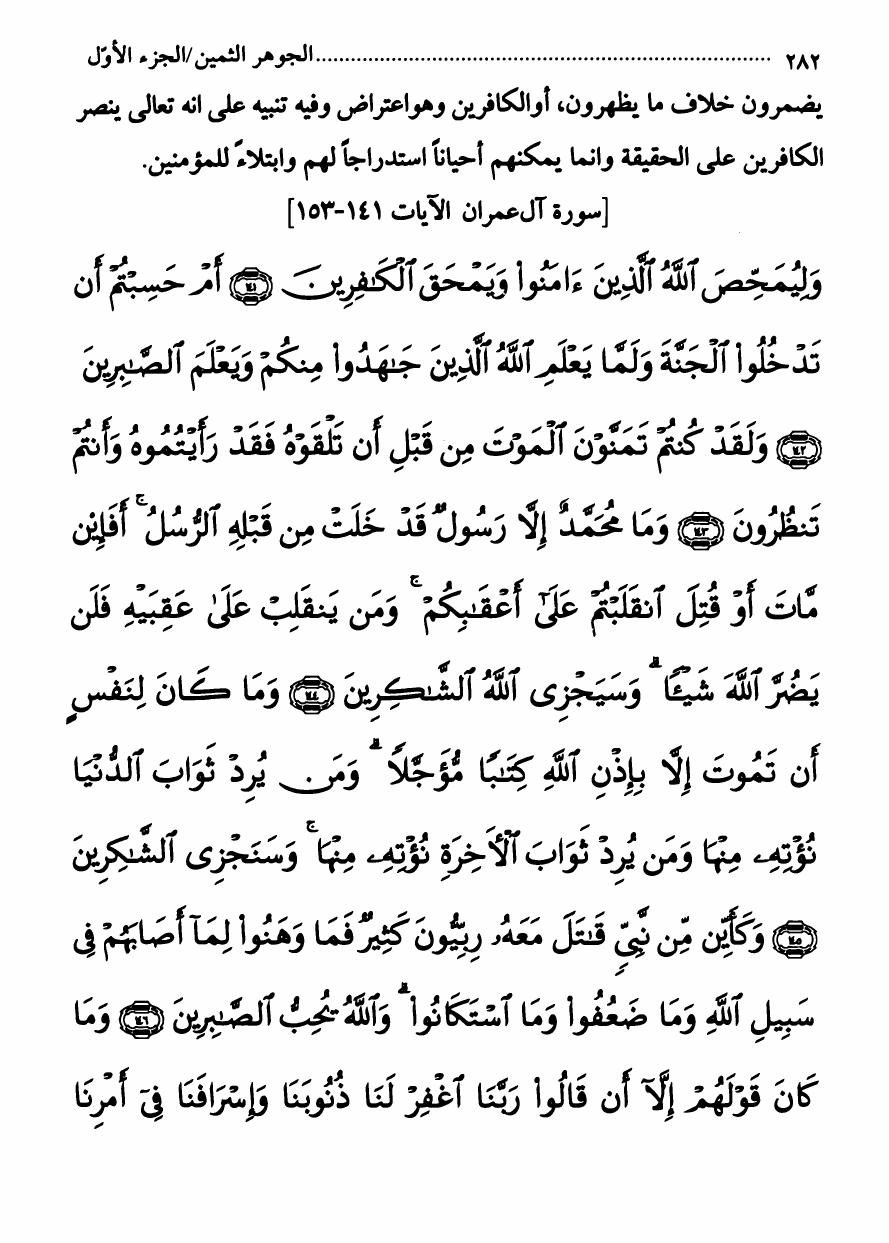 ٢٨٢ ................................................................................الجوهر الثمين/الجزء الأوّل
يضمرون خلاف ما يظهرون، أوالكافرين وهواعتراض وفيه تنبيه على انه تعالى ينصر
الكافرين على الحقيقة وانما يمكنهم أحياناً استدراجاً لهم وابتلاءً للمؤمنين.
[سورة آل‌عمران الآيات ١٤١-١٥٣]
وَلِيُمَحِّصَ ٱللَّهُ ٱلَّذِينَ ءَامَنُوا۟ وَيَمْحَقَ ٱلْكَٰفِرِينَ ﴿١٤١﴾ أَمْ حَسِبْتُمْ أَن
تَدْخُلُوا۟ ٱلْجَنَّةَ وَلَمَّا يَعْلَمِ ٱللَّهُ ٱلَّذِينَ جَٰهَدُوا۟ مِنكُمْ وَيَعْلَمَ ٱلصَّٰبِرِينَ
﴿١٤٢﴾ وَلَقَدْ كُنتُمْ تَمَنَّوْنَ ٱلْمَوْتَ مِن قَبْلِ أَن تَلْقَوْهُ فَقَدْ رَأَيْتُمُوهُ وَأَنتُمْ
تَنظُرُونَ ﴿١٤٣﴾ وَمَا مُحَمَّدٌ إِلَّا رَسُولٌ قَدْ خَلَتْ مِن قَبْلِهِ ٱلرُّسُلُ ۚ أَفَإِي۟ن
مَّاتَ أَوْ قُتِلَ ٱنقَلَبْتُمْ عَلَىٰٓ أَعْقَٰبِكُمْ ۚ وَمَن يَنقَلِبْ عَلَىٰ عَقِبَيْهِ فَلَن
يَضُرَّ ٱللَّهَ شَيْـًٔا ۗ وَسَيَجْزِى ٱللَّهُ ٱلشَّٰكِرِينَ ﴿١٤٤﴾ وَمَا كَانَ لِنَفْسٍ
أَن تَمُوتَ إِلَّا بِإِذْنِ ٱللَّهِ كِتَٰبًا مُّؤَجَّلًا ۗ وَمَن يُرِدْ ثَوَابَ ٱلدُّنْيَا
نُؤْتِهِۦ مِنْهَا وَمَن يُرِدْ ثَوَابَ ٱلْأَخِرَةِ نُؤْتِهِۦ مِنْهَا ۚ وَسَنَجْزِى ٱلشَّٰكِرِينَ
﴿١٤٥﴾ وَكَأَيِّن مِّن نَّبِىٍّ قَٰتَلَ مَعَهُۥ رِبِّيُّونَ كَثِيرٌ فَمَا وَهَنُوا۟ لِمَآ أَصَابَهُمْ فِى
سَبِيلِ ٱللَّهِ وَمَا ضَعُفُوا۟ وَمَا ٱسْتَكَانُوا۟ ۗ وَٱللَّهُ يُحِبُّ ٱلصَّٰبِرِينَ ﴿١٤٦﴾ وَمَا
كَانَ قَوْلَهُمْ إِلَّآ أَن قَالُوا۟ رَبَّنَا ٱغْفِرْ لَنَا ذُنُوبَنَا وَإِسْرَافَنَا فِىٓ أَمْرِنَا